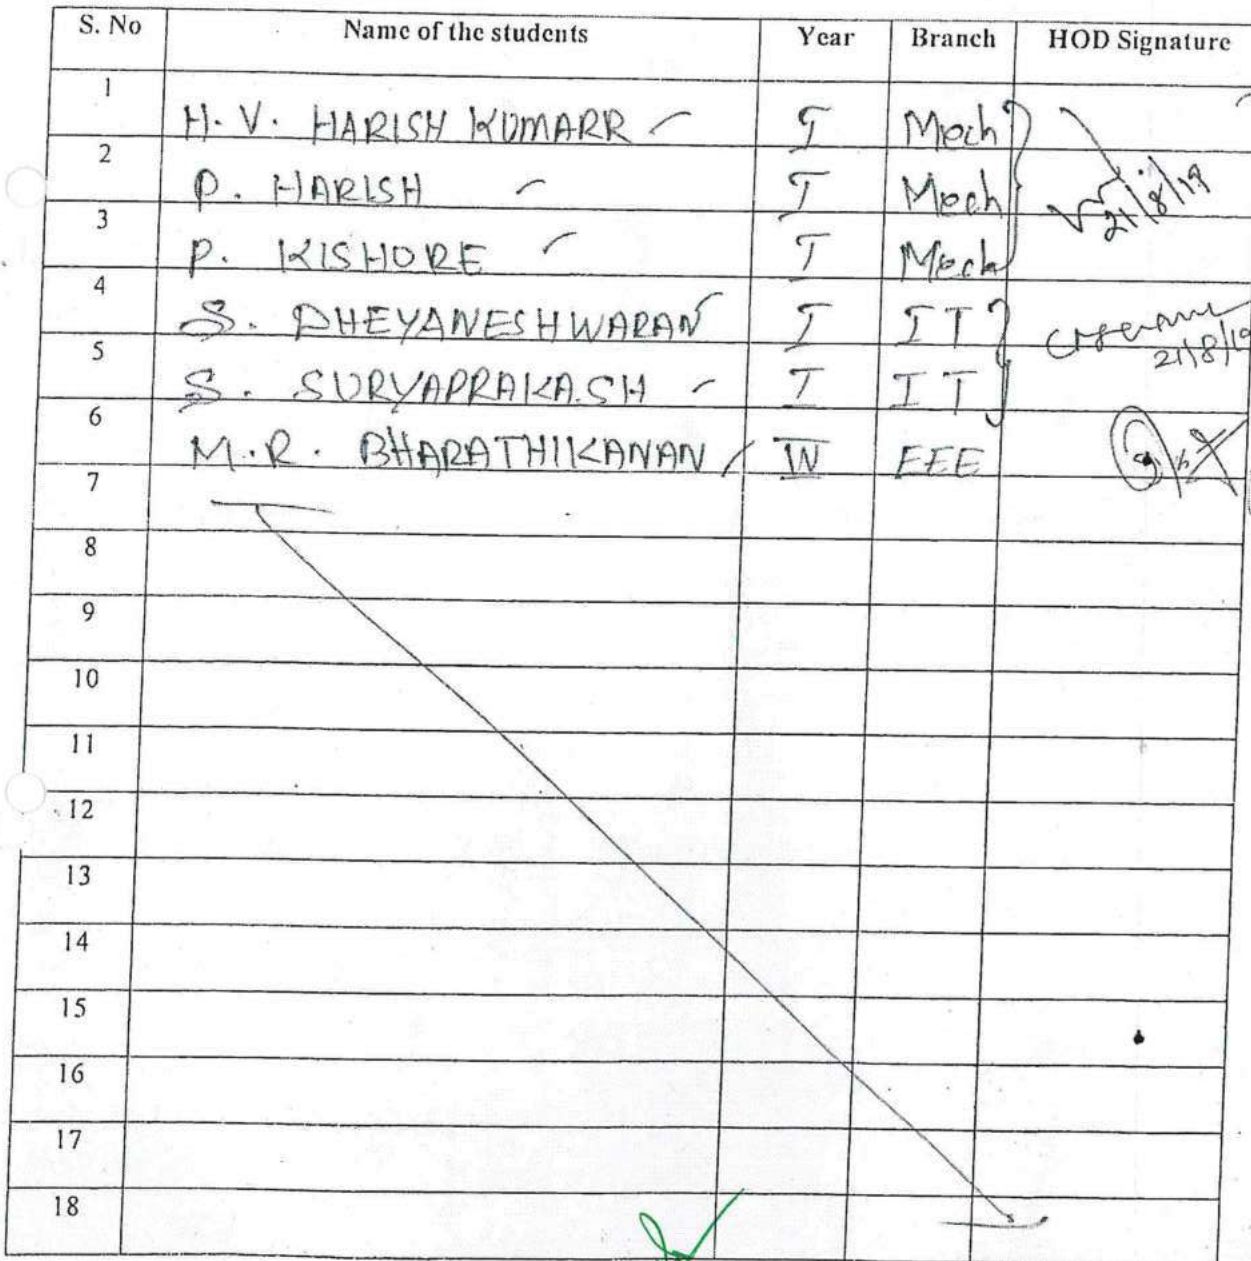 S. No Name of the students Year Branch HOD Signature
1 H. V. HARISH KUMARR I Mech
2 P. HARISH I Mech 21/8/19
3 P. KISHORE I Mech
4 S. DHEYANESHWARAN I IT
5 S. SURYAPRAKASH I IT 21/8/19
6 M.R. BHARATHIKANAN IV EEE
7
8
9
10
11
12
13
14
15
16
17
18